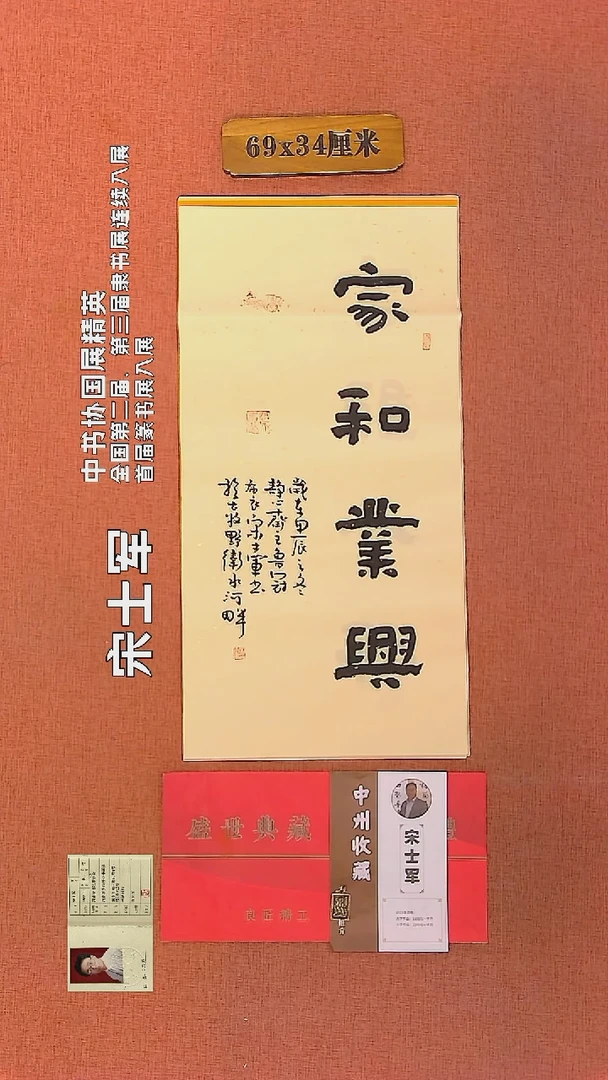 69x34厘米
中书协国展精英
全国第二届、第三届隶书展连续入展
首届篆书展入展
宋士军
家和業興
歲在甲辰之冬
静心齋主魯冠
布衣宋士軍书
於古牧野衛水河畔
盛世典藏
良匠精工
中州收藏
宋士军